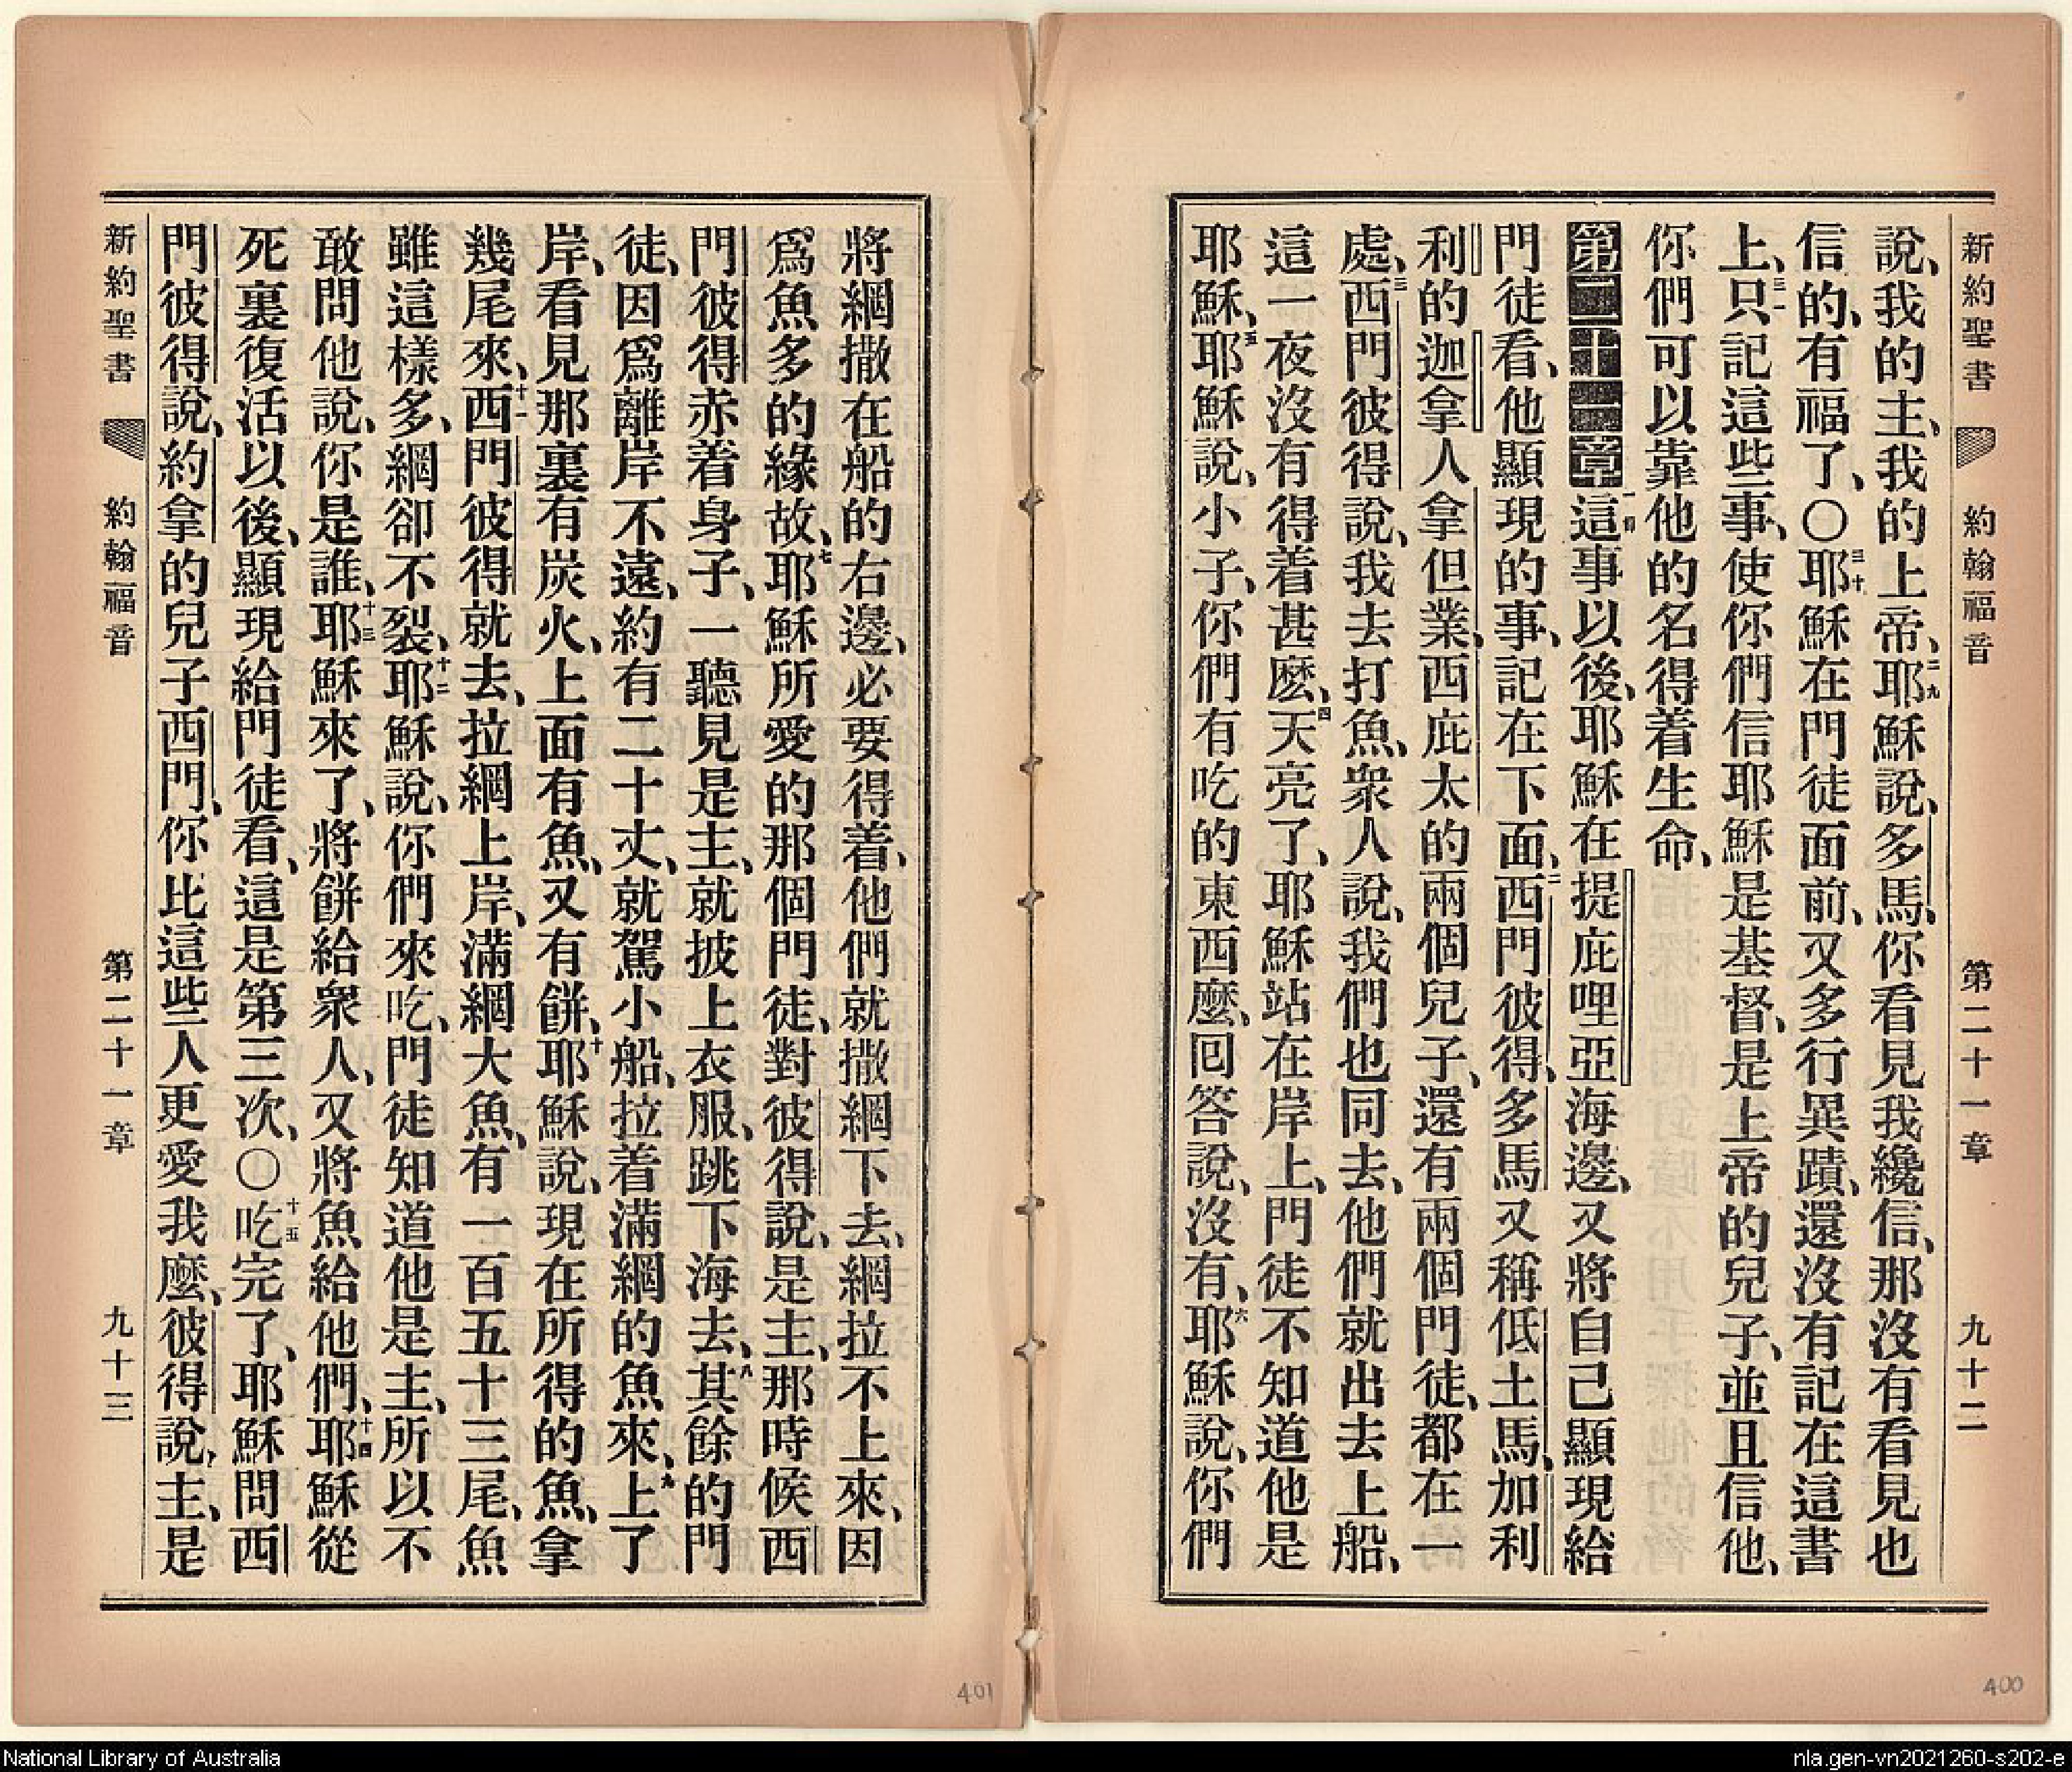 新約聖書 約翰福音 第二十一章 九十二
說、我的主、我的上帝、二九耶穌說、多馬、你看見我纔信、那沒有看見也
信的、有福了、〇三十耶穌在門徒面前、又多行異蹟、還沒有記在這書
上、三一只記這些事、使你們信耶穌是基督、是上帝的兒子、並且信他、
你們可以靠他的名得着生命、
第二十一章一節這事以後、耶穌在提庇哩亞海邊、又將自己顯現給
門徒看、他顯現的事、記在下面、二西門彼得、多馬又稱低土馬、加利
利的迦拿人拿但業、西庇太的兩個兒子、還有兩個門徒、都在一
處、三西門彼得說、我去打魚、衆人說、我們也同去、他們就出去上船、
這一夜沒有得着甚麽、四天亮了、耶穌站在岸上、門徒不知道他是
耶穌、五耶穌說、小子、你們有吃的東西麽、囘答說、沒有、六耶穌說、你們
將網撒在船的右邊、必要得着、他們就撒網下去、網拉不上來、因
爲魚多的緣故、七耶穌所愛的那個門徒、對彼得說、是主、那時候西
門彼得赤着身子、一聽見是主、就披上衣服、跳下海去、八其餘的門
徒、因爲離岸不遠、約有二十丈、就駕小船、拉着滿網的魚來、九上了
岸、看見那裏有炭火、上面有魚、又有餅、十耶穌說、現在所得的魚、拿
幾尾來、十一西門彼得就去、拉網上岸、滿網大魚、有一百五十三尾、魚
雖這樣多、網卻不裂、十二耶穌說、你們來吃、門徒知道他是主、所以不
敢問他說、你是誰、十三耶穌來了、將餅給衆人、又將魚給他們、十四耶穌從
死裏復活以後、顯現給門徒看、這是第三次、〇十五吃完了、耶穌問西
門彼得說、約拿的兒子西門、你比這些人更愛我麽、彼得說、主、是
新約聖書 約翰福音 第二十一章 九十三
401
400
National Library of Australia
nla.gen-vn2021260-s202-e